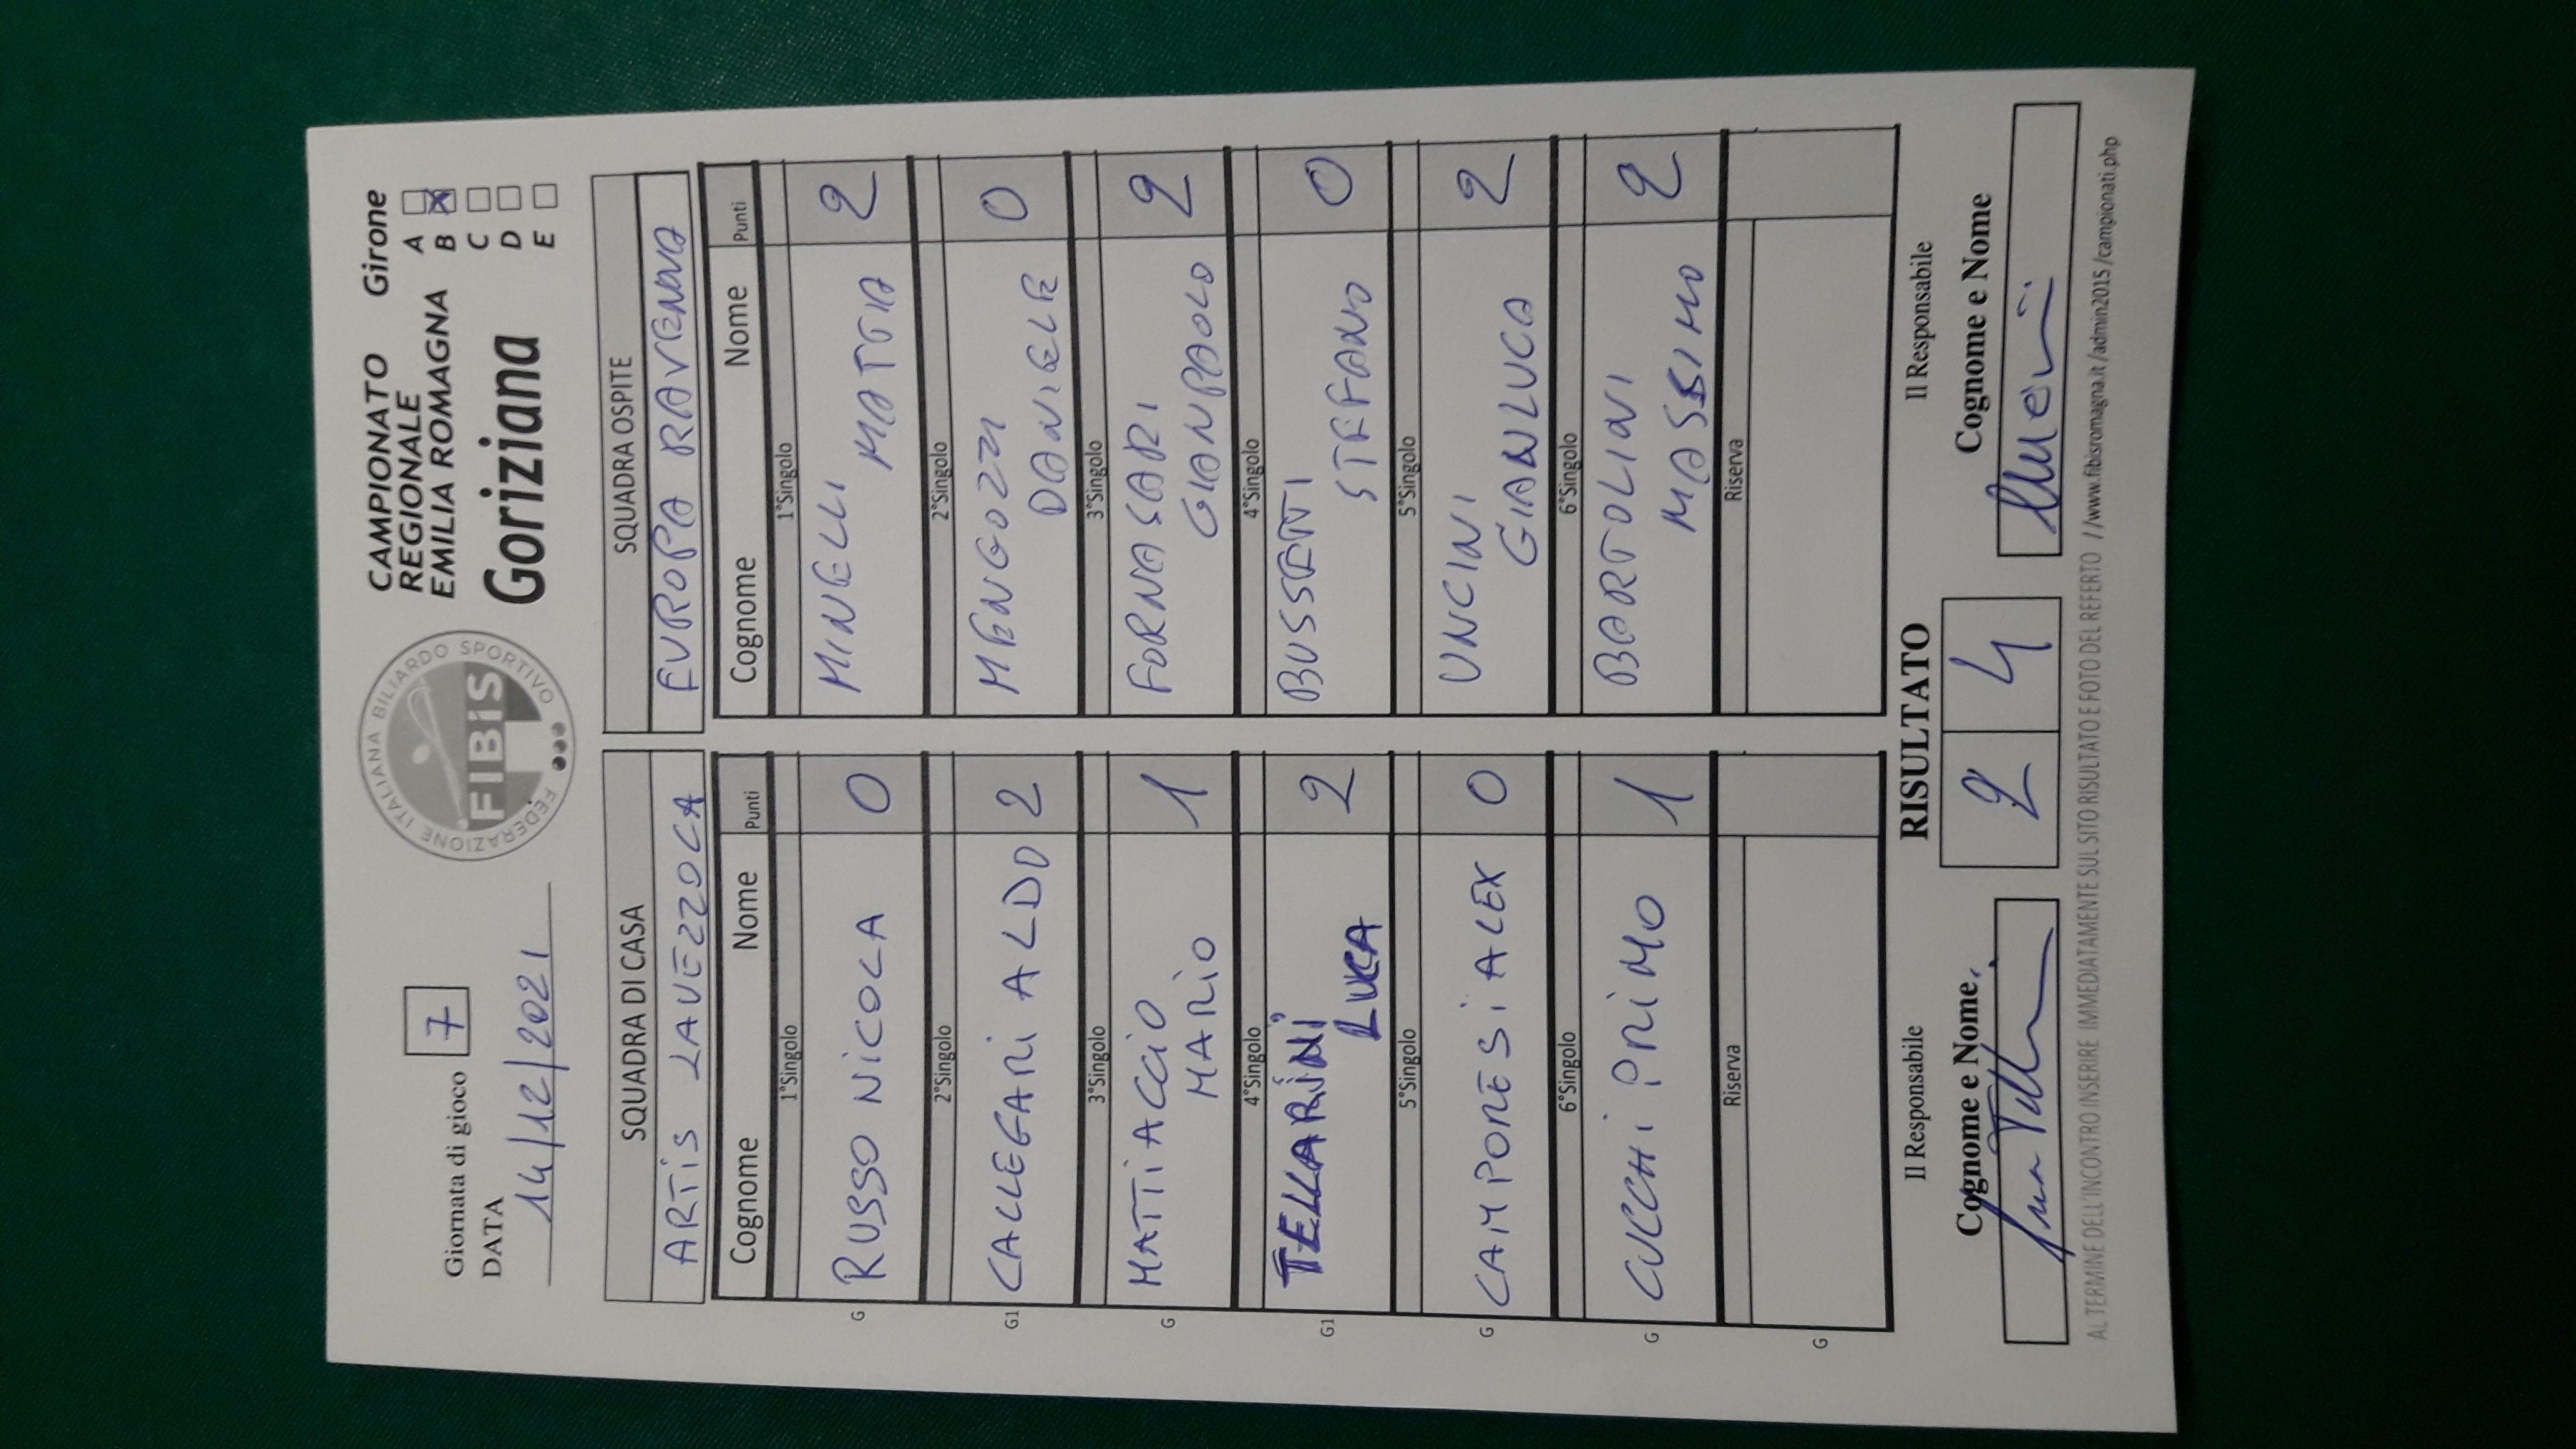 Giornata di gioco 7
DATA
14/12/2021
FEDERAZIONE ITALIANA BILIARDO SPORTIVO
FIBiS
CAMPIONATO
REGIONALE
EMILIA ROMAGNA
Goriziana
Girone
A
B X
C
D
E
SQUADRA DI CASA
ARTiS LAVEZZOLA
Cognome Nome Punti
1°Singolo
G RUSSO NiCOLA 0
2°Singolo
G1 CALLEGARi ALDO 2
3°Singolo
G MATTiACCiO
MARiO 1
4°Singolo
G1 TELLARiNi
LUCA 2
5°Singolo
G CAMPORESi ALEX 0
6°Singolo
G CUCCHi PRiMO 1
Riserva
G
SQUADRA OSPITE
EUROPA RAVENNA
Cognome Nome Punti
1°Singolo
MINELLI
MATTIA 2
2°Singolo
MENGOZZI
DANIELE 0
3°Singolo
FORNASARI
GIANPAOLO 2
4°Singolo
BUSSETTI
STEFANO 0
5°Singolo
UNCINI
GIANLUCA 2
6°Singolo
BARTOLINI
MASSIMO 2
Riserva
Il Responsabile
Cognome e Nome
RISULTATO
2 4
Il Responsabile
Cognome e Nome
AL TERMINE DELL'INCONTRO INSERIRE IMMEDIATAMENTE SUL SITO RISULTATO E FOTO DEL REFERTO //www.fibisromagna.it/admin2015/campionati.php